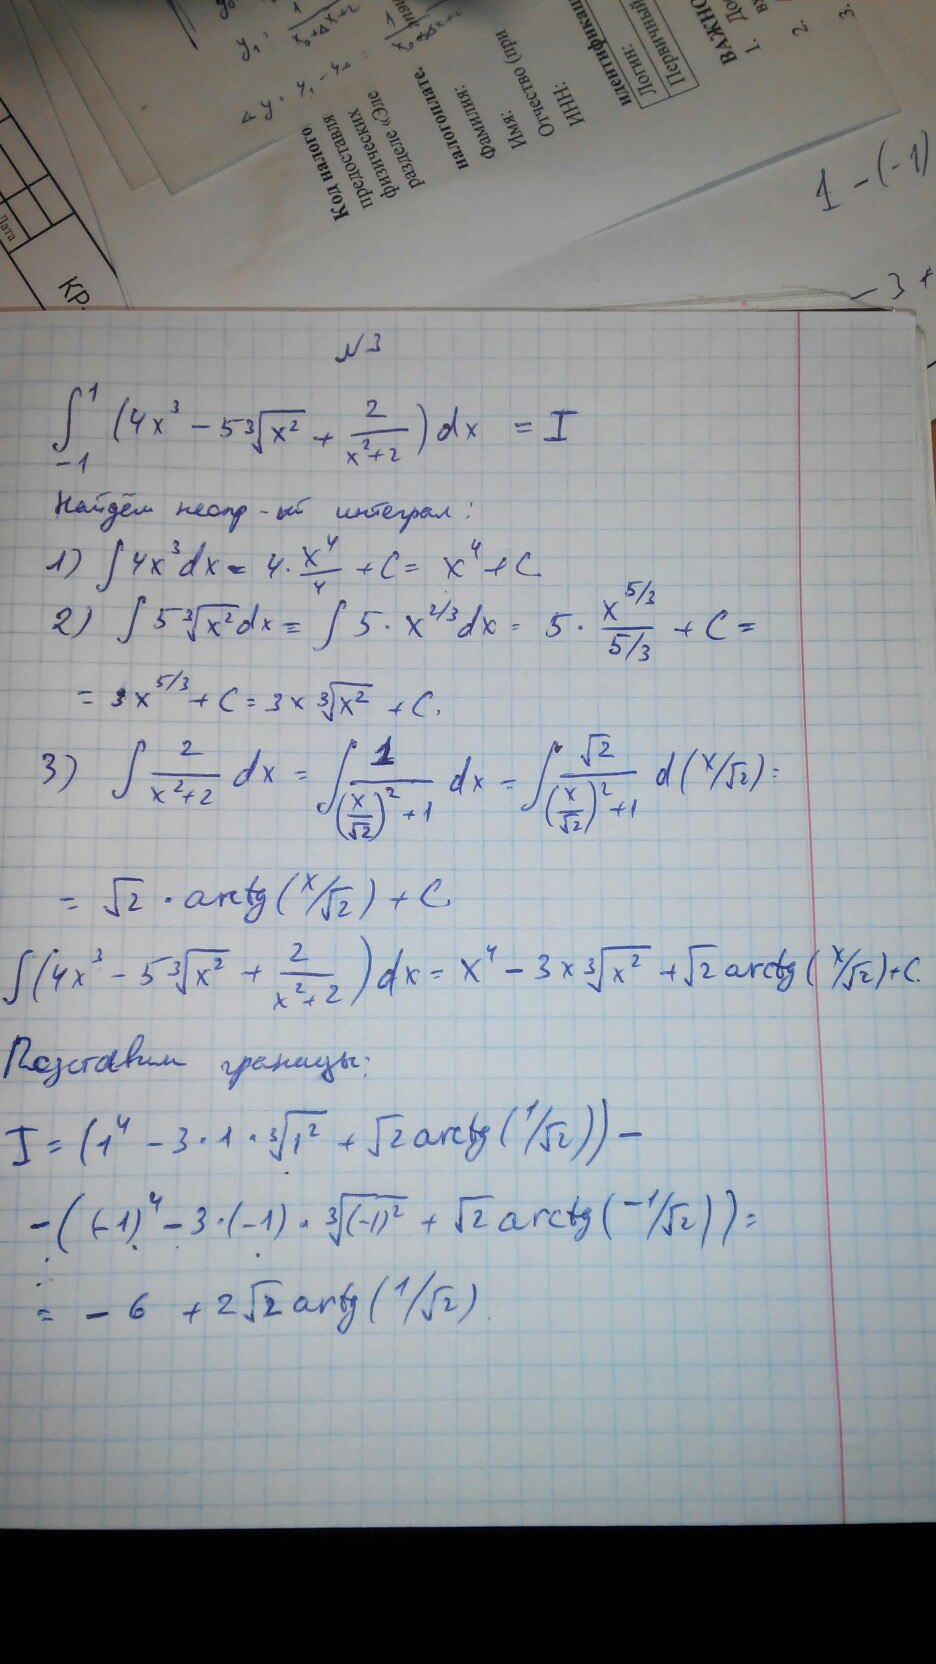 y₁ = 1/(x₀+Δx+2)
Δy = y₁ - y₀
Код налого
предоставля
физических
разделе «Эле
налогоплате.
Фамилия:
Имя:
Отчество (при
ИНН:
идентификац
Логин:
Первичный
ВАЖНО
1. До
2.
3.
Дата
КР.
1 - (-1)
- 3 +
N3
∫₋₁¹ (4x³ - 5∛(x²) + 2/(x²+2)) dx = I
Найдём неопр-ый интеграл:
1) ∫4x³dx = 4 · x⁴/4 + C = x⁴ + C.
2) ∫5∛(x²)dx = ∫5 · x^(2/3)dx = 5 · x^(5/3)/(5/3) + C =
= 3x^(5/3) + C = 3x∛(x²) + C.
3) ∫ 2/(x²+2) dx = ∫ 1/((x/√2)²+1) dx = ∫ √2/((x/√2)²+1) d(x/√2) =
= √2 · arctg(x/√2) + C.
∫(4x³ - 5∛(x²) + 2/(x²+2))dx = x⁴ - 3x∛(x²) + √2 arctg(x/√2) + C.
Подставим границы:
I = (1⁴ - 3·1·∛(1²) + √2 arctg(1/√2)) -
- ((-1)⁴ - 3·(-1)·∛((-1)²) + √2 arctg(-1/√2)) =
= - 6 + 2√2 artg(1/√2).